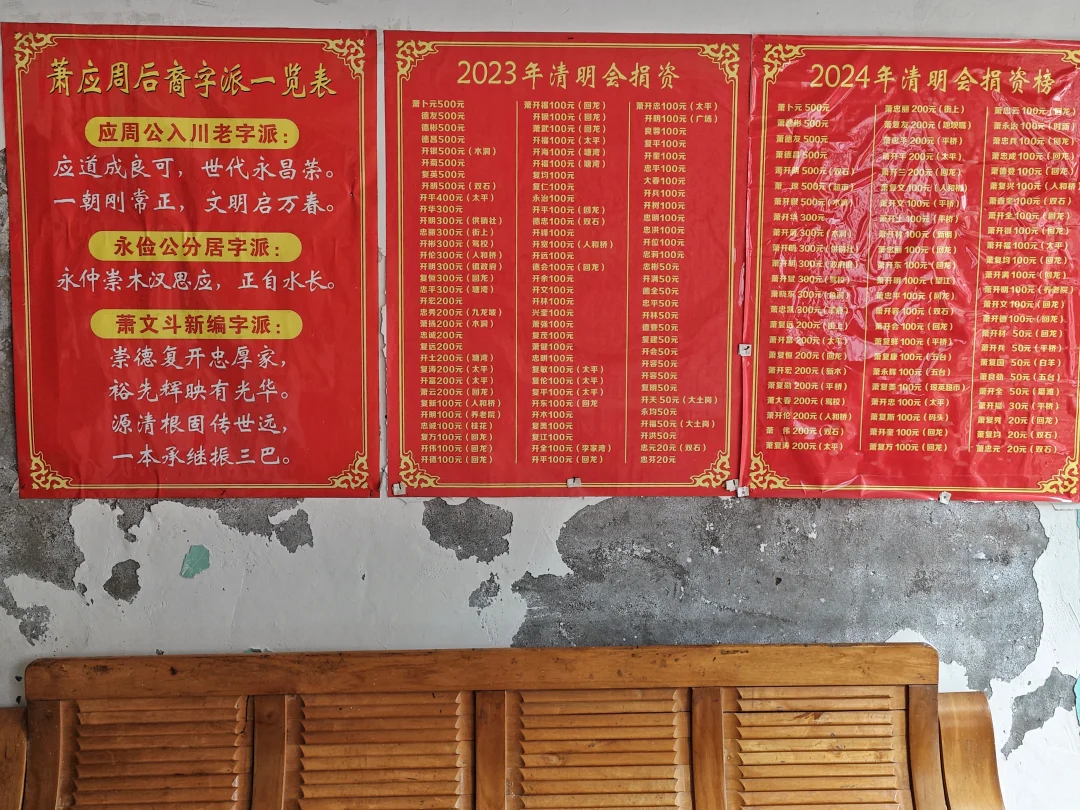 萧应周后裔字派一览表
应周公入川老字派:
应道成良可，世代永昌荣。
一朝刚常正，文明启万春。
永俭公分居字派:
永仲崇木汉思应，正自水长。
萧文斗新编字派:
崇德复开忠厚家，
裕先辉映有光华。
源清根固传世远，
一本承继振三巴。
2023年清明会捐资
萧卜元500元
德友500元
德彬500元
德昌500元
开银500元（木洞）
开菊500元
复英500元
开鹏500元（双石）
开平400元（太平）
开华300元
开明300元（供销社）
忠丽300元（街上）
开彬300元（驾校）
开伦300元（人和桥）
开朝300元（镇政府）
复恒300元（回龙）
忠平300元（塘湾）
开宏200元
忠秀200元（九龙坡）
萧扬200元（木洞）
忠诚200元
复远200元
开土200元（塘湾）
复涛200元（太平）
开富200元（太平）
萧云200元（回龙）
复新100元（人和桥）
开明100元（养老院）
忠诚100元（桂花）
复万100元（回龙）
开伟100元（回龙）
开德100元（回龙）
萧开福100元（回龙）
开银100元（回龙）
萧武100元（回龙）
开福100元（太平）
开海100元（塘湾）
开福100元（塘湾）
复均100元
复仁100元
永治100元
开平100元（回龙）
德忠100元（双石）
开锋100元
开宽100元（人和桥）
开远100元
德会100元（回龙）
开余100元
开文100元
开林100元
兴奎100元
萧强100元
复茂100元
萧健100元
忠明100元
复敏100元（太平）
复伦100元（太平）
复平100元（太平）
开东100元（回龙
开木100元
复奥100元
复江100元
开全100元（李家湾）
开平100元（回龙）
萧开忠100元（太平）
开明100元（广场）
良蓉100元
复平100元
开奎100元
忠平100元
大春100元
开兵100元
开树100元
忠明100元
忠洪100元
开位100元
忠莉100元
忠彬50元
开满50元
德全50元
忠平50元
开林50元
德登50元
复建50元
开会50元
开容50元
开容50元
复明50元
开天50元（大土岗）
永均50元
开福50元（大土岗）
开洪50元
忠元20元（双石）
忠芬20元
2024年清明会捐资榜
萧卜元 500元
萧德彬 500元
萧德友 500元
萧德昌 500元
萧开鹏 500元（双石）
萧开银 500元（木洞）
萧开华 300元
萧开明 300元（供销社）
萧复远 200元（街上）
萧开富 200元（太平）
萧复恒 200元（回龙）
萧开宏 200元（新木）
萧复勋 200元（平桥）
萧大春 200元（驾校）
萧开伦 200元（人和桥）
萧 伟 200元（双石）
萧复涛 200元（太平）
萧忠丽 200元（街上）
萧忠平 200元（平桥）
萧开平 200元（太平）
萧开三 200元（回龙）
萧复文 100元（人和桥）
萧开文 100元（平桥）
萧开东 100元（回龙）
萧忠平 100元（回龙）
萧开容 100元（双石）
萧开会 100元（回龙）
萧复辉 100元（平桥）
萧复康 100元（五台）
萧永辉 100元（五台）
萧开忠 100元（太平）
萧复斯 100元（码头）
萧开奎 100元（回龙）
萧复万 100元（回龙）
萧忠云 100元（回龙）
萧忠兵 100元（回龙）
萧忠成 100元（回龙）
萧德登 100元（回龙）
萧复兴 100元（人和桥）
萧开全 100元（回龙）
萧开银 100元（回龙）
萧开福 100元（太平）
萧复均 100元（回龙）
萧开满 100元（回龙）
萧开明 100元（养老院）
萧开文 100元（回龙）
萧开德 100元（回龙）
萧开材 50元（回龙）
萧开兵 50元（平桥）
萧复国 50元（白羊）
萧良勋 50元（五台）
萧开福 30元（平桥）
萧复秀 20元（回龙）
萧复均 20元（双石）
萧忠元 20元（双石）